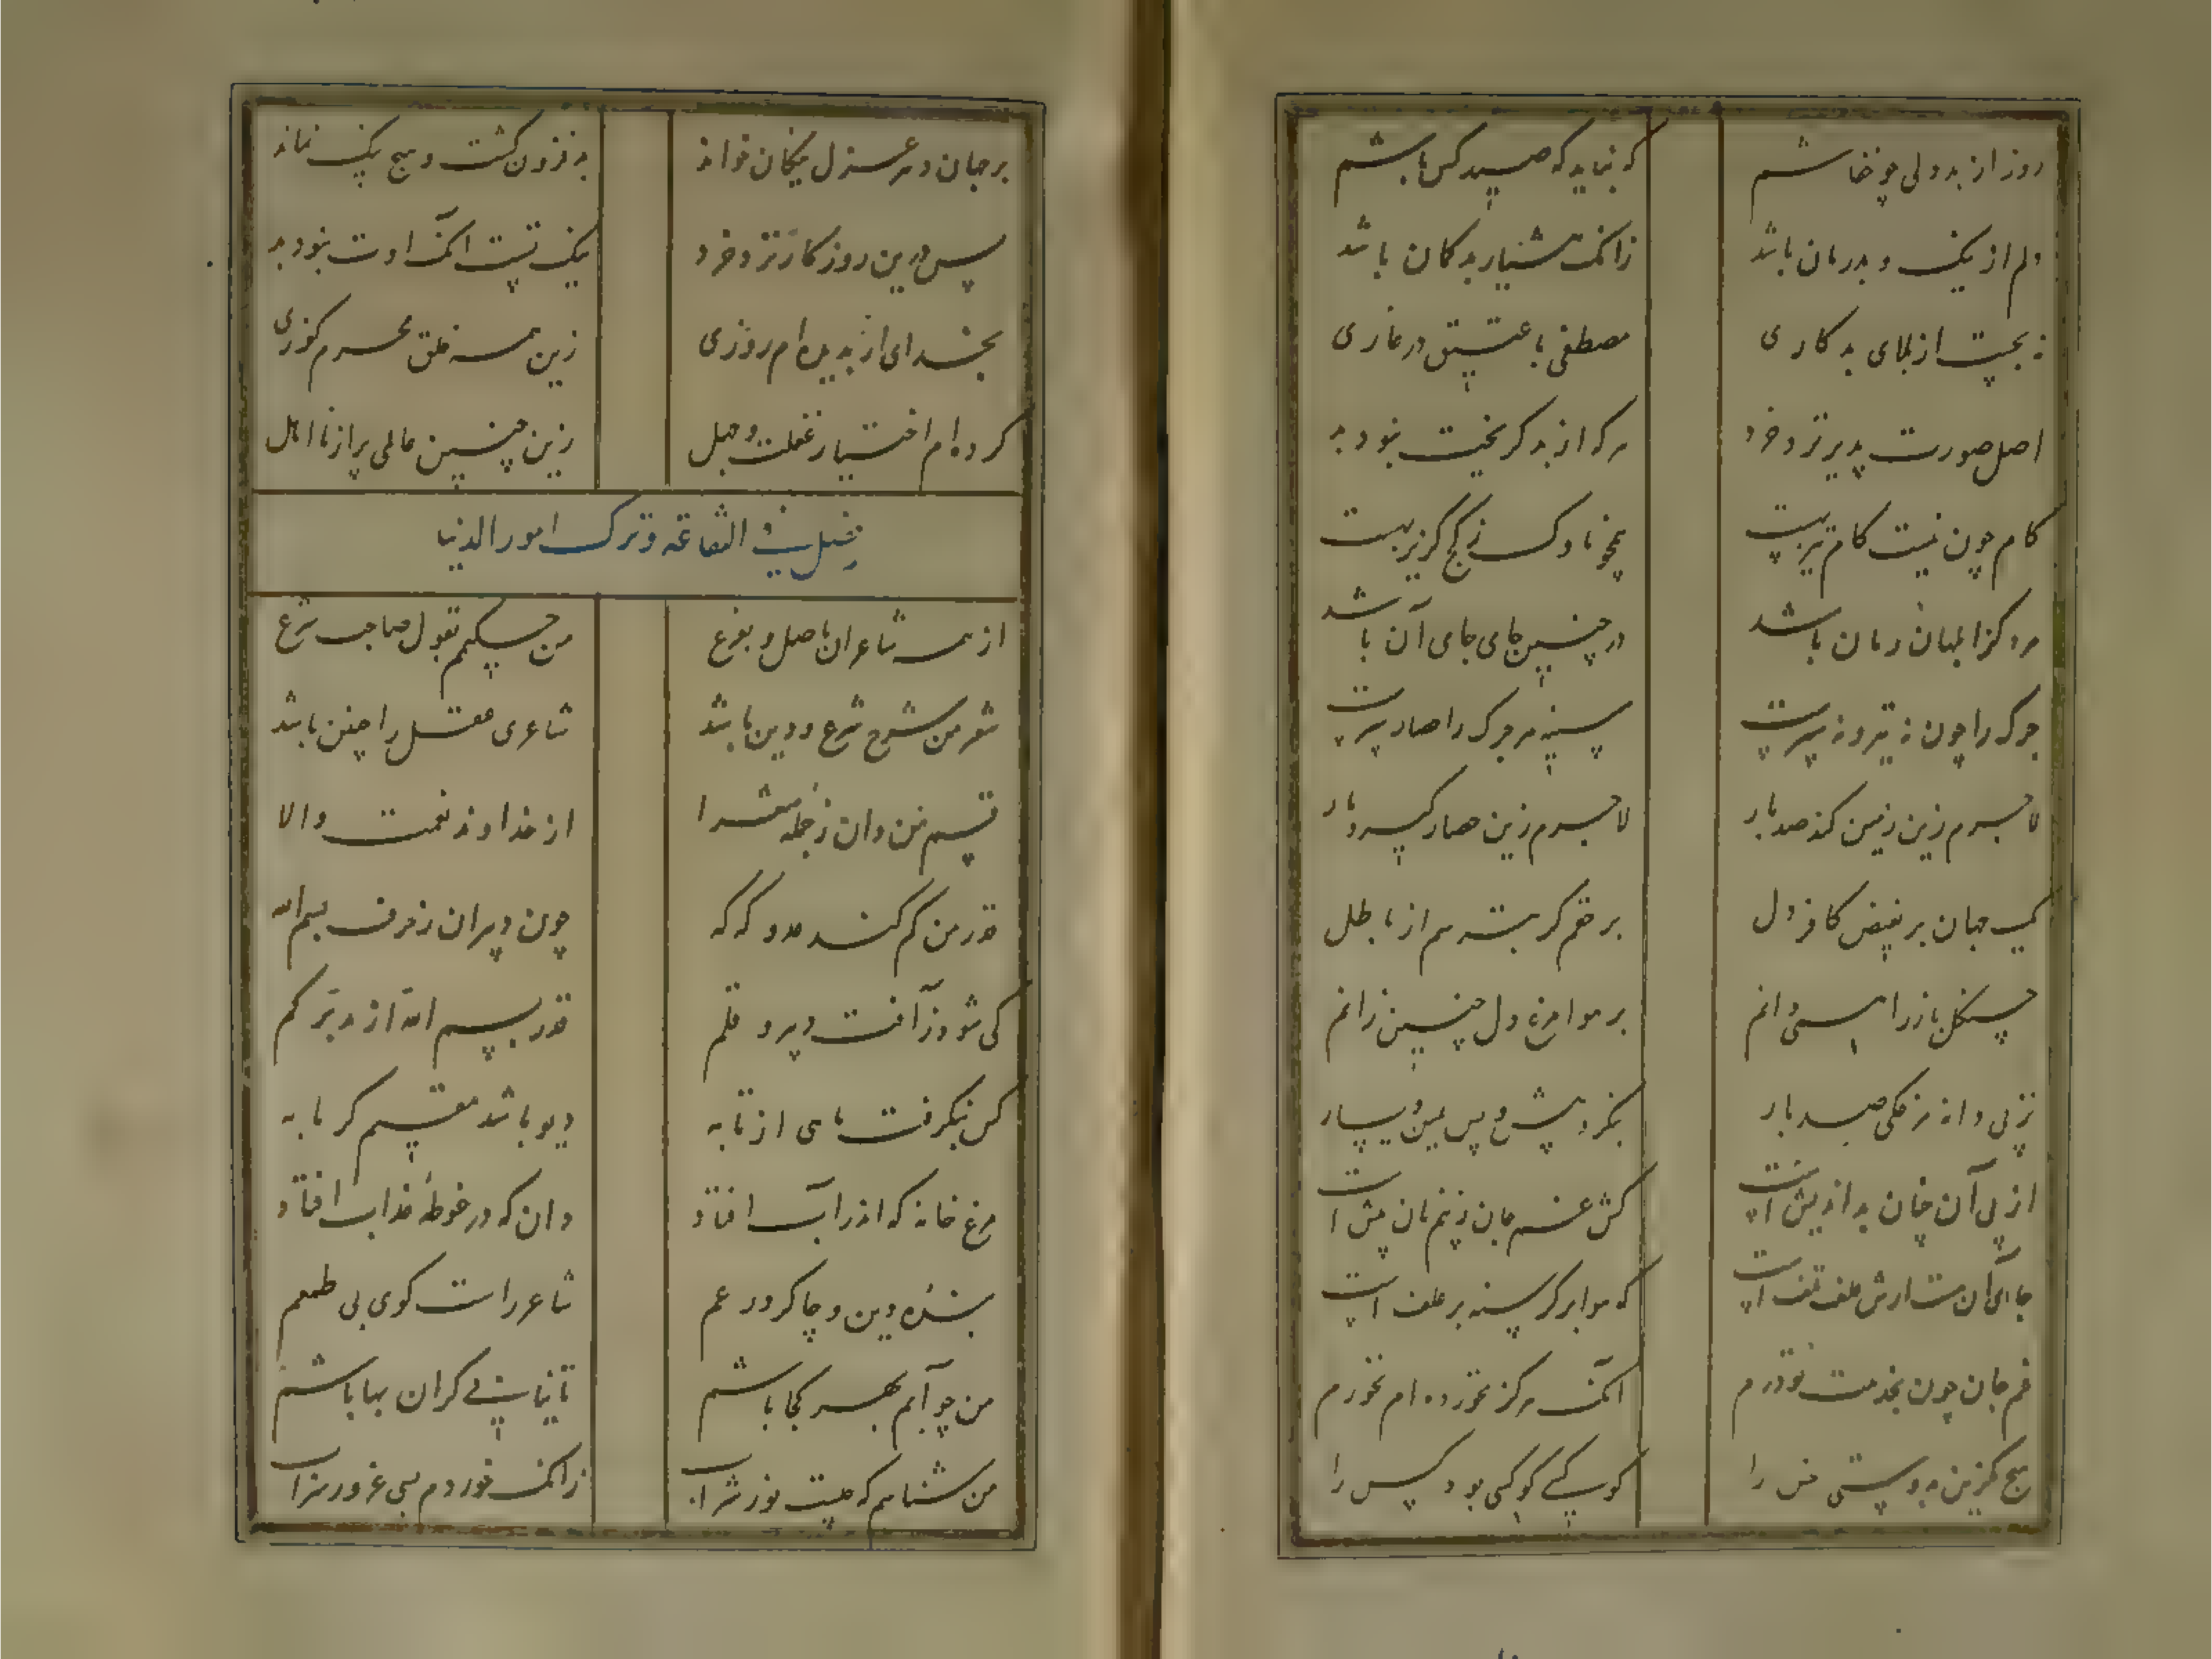 روز از بددلی چو خفاشم
که نباید که صید کس باشم
دلم از نیک و بد رمان باشد
زانک هشیار بدکان باشد
نه بجست از بلای بدکاری
مصطفی با عتیق در غاری
اصل صورت پذیر نزد خرد
هرکه از بد کریخت نبود بد
کام چون نیست کام تیر بهست
همچو ناوک ز کج گریز بهست
مرد کز ابلهان رمان باشد
در چنین جای جای آن باشد
چوکه را چون نه تیر و نه سپرست
سینه مر چوک را حصار پرست
لاجرم زین زمین کند صد بار
لاجرم زین حصار گیرد نار
جهان بر نقیض کافر دل
بر حقم کر بترسم از باطل
جنکل باز را همی دانم
بر هوا مرغ دل چنین زانم
نزنی دانه مرغکی صد بار
بنکرد پیش و پس یمین و یسار
از پی آن چنان بداندیش است
کش غم جان ز بیم نان پیش است
غم جان چون بخدمت تو درم
آنک هرکز نخورده‌ام نخورم
هیچ مکزین بدوستی خس را
کو یکی کو کسی بود کس را
بر جهان دهر عزل نیکان خواند
بد فزون کشت و هیچ نیک نماند
پس درین روزکار نزد خرد
نیک نیست آنک اوت نبود بد
بخدای ار بدیده‌ام روزی
زین همه خلق محرم کوزی
کرده‌ام اختیار غفلت و جهل
زین چنین عالمی پر از نااهل
فصل فی القناعة و ترک امور الدنیا
از همه شاعران باصل و بفرع
من حکیمم بقول صاحب شرع
شعر من شرح شرع و دین باشد
شاعری عقل را چنین باشد
قسم من دان ز جمله شعرا
از خداوند نعمت والا
قدر من کم کند عدو که که
چون دبیران ز حرف بسم الله
کی شود ز آفت دبیر و قلم
قدر بسم الله از دبیر کم
کس نکرفت ماهی از تابه
دیو باشد مقیم کرمابه
مرغ خانه که اندر آب افتاد
دان که در غوطهٔ عذاب افتاد
بنده دین و چاکر ورعم
شاعر راست کوی بی طمعم
من چو آبم بهر کجا باشم
تا نیابی کران بها باشم
من شناسم که چیست نور شراب
زانک خوردم بسی غرور سراب